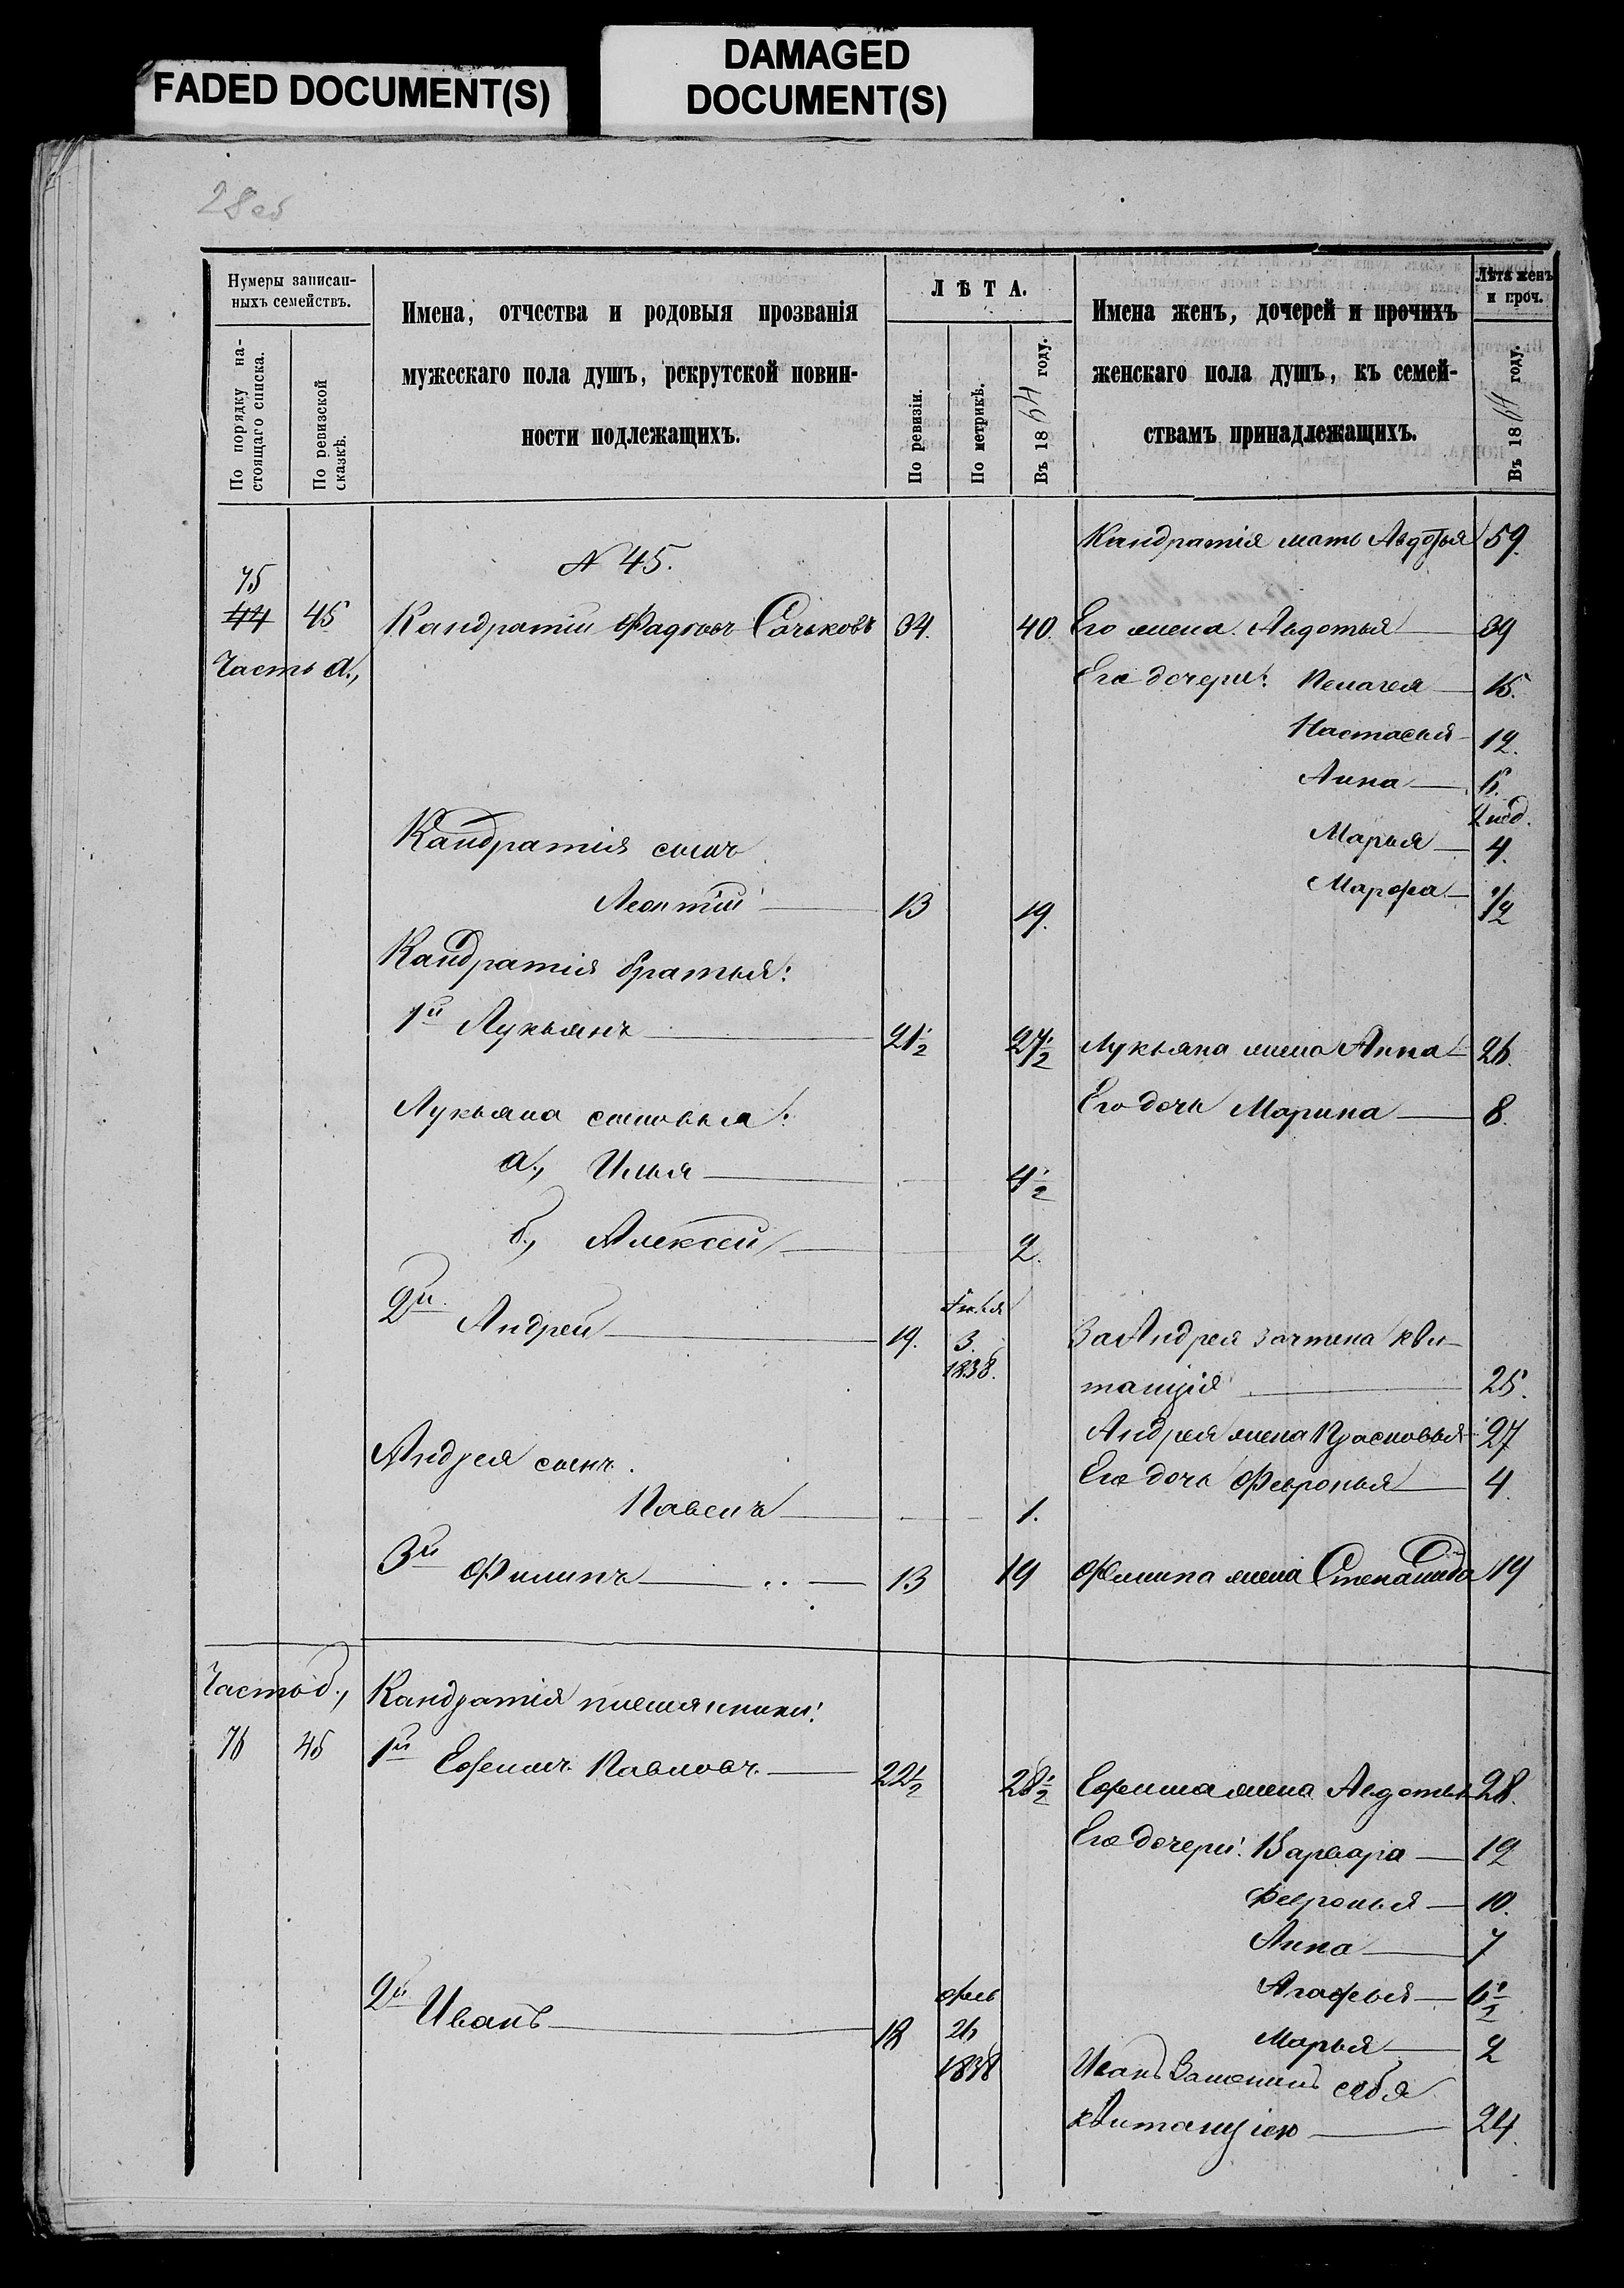 FADED DOCUMENT(S)
DAMAGED
DOCUMENT(S)
28об
Нумеры записан-
ныхъ семействъ.
По порядку на-
стоящаго списка.
По ревизской
сказкѣ.
Имена, отчества и родовыя прозванія
мужескаго пола душъ, рекрутской повин-
ности подлежащихъ.
ЛѢТА.
По ревизіи.
По метрикѣ.
Въ 1864 году.
Имена женъ, дочерей и прочихъ
женскаго пола душъ, къ семей-
ствамъ принадлежащихъ.
Лѣта женъ
и проч.
Въ 1864 году.
Кандратія мать Авдотья 59.
N 45.
75
44 45 Кандратій Фадѣевъ 34. 40. Его жена Авдотья 39
Часть а., Его дочери: Пелагея 15.
Настасья 12.
Анна 6.
2 нед.
Кандратія сынъ Марья 4.
Леонтій 13 19. Марфа 1/2
Кандратія братья:
1й Лукьянъ 21 1/2 27 1/2 Лукьяна жена Анна 26.
Лукьяна сыновья: Его дочь Марина 8.
а., Илья 4 1/2
б., Алексей 2.
2й Андрей 19. 3. 1838. За Андрея зачтена кви-
танція 25.
Андрея жена Прасковья 27
Андрея сынъ Его дочь Февронья 4.
Павелъ 1.
3й Филипъ 13 19 Филипа жена Степанида 19
Часть б., Кандратія племянники:
76 45 1й Ефимъ Павловъ 22 1/2 28 1/2 Ефима жена Авдотья 28.
Его дочери: Варвара 12
Февронья 10.
Анна 7
2й Иванъ 18 Фев 26 1838 Агафья 6 1/2
Марья 2
Иванъ Заменилъ себя
квитанціею 24.